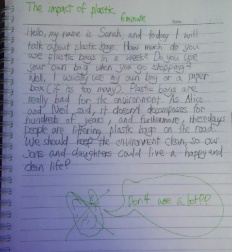 The impact of plastic
6 minute
Hello, my name is Sarah, and today I will
talk about plastic bags. How much do you
use plastic bags in a week? Do you use
your own bag when you go shopping?
Well, I usually use my own bag or a paper
box (if it is too many). Plastic bags are
really bad for the environment. As Alice
and Neil said, it doesn't decompose for
hundreds of years, and furthermore, these days
people are littering plastic bags on the road.
We should keep the environment clean, so our
sons and daughters could live a happy and
clean life!
Don't use a lot??